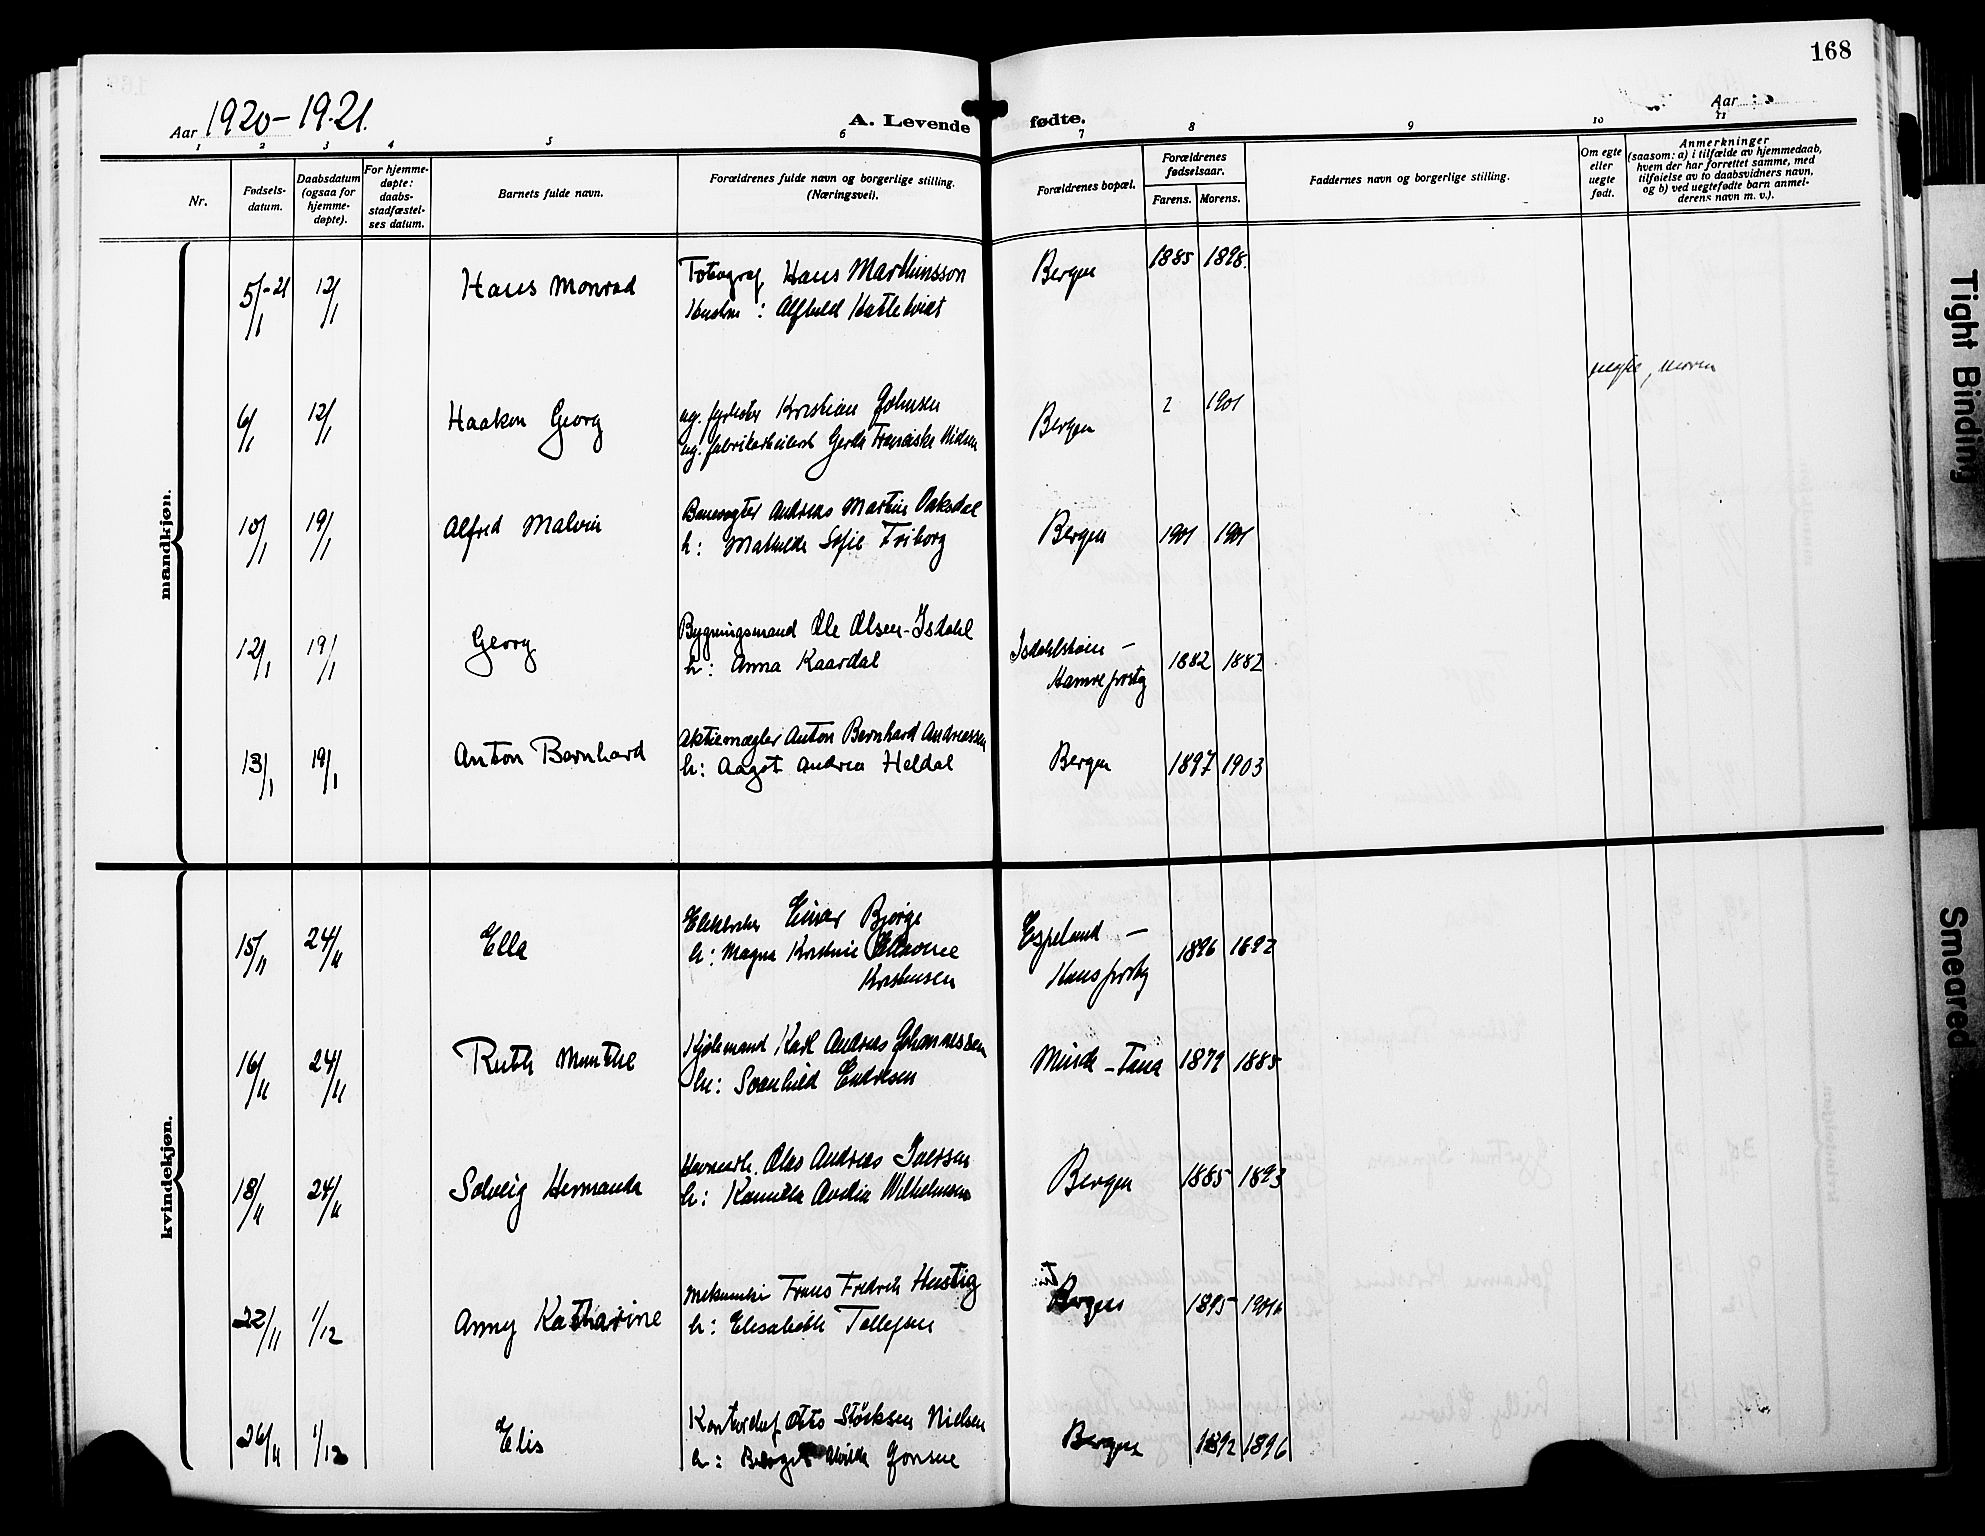 168
Aar 1920-1921.
A. Levende fødte.
Aar
1 2 3 4 5 6 7 8 9 10 11
Nr.
Fødsels-
datum.
Daabsdatum
(ogsaa for
hjemme-
døpte).
For hjemme-
døpte:
daabs-
stadfæstel-
ses datum.
Barnets fulde navn.
Forældrenes fulde navn og borgerlige stilling.
(Næringsvei).
Forældrenes bopæl.
Forældrenes
fødselsaar.
Farens. Morens.
Faddernes navn og borgerlige stilling.
Om egte
eller
uegte
født.
Anmerkninger
(saasom: a) i tilfælde av hjemmedaab,
hvem der har forrettet samme, med
tilføielse av to daabsvidners navn,
og b) ved uegtefødte barn anmel-
derens navn m. v.).
mandkjøn.
5/1-21 12/1 Hans Monrad Fotograf Hans Marthinsson Bergen 1885 1898.
Hustru: Alfhild Hatlekvist
uegte, moren
6/1 12/1 Haakon Georg ug. fyrbøter Kristian Johnsen Bergen 1901
ug. fabrikarbeiderske Gerda Franciska
10/1 19/1 Alfred Malvin Banevogter Andreas Martin Vaksdal Bergen 1901 1901
h: Mathilde Sofie Friborg
12/1 19/1 Georg Bygningsmand Ole Olsen-Isdahl Isdahlstøen - 1882 1882
h: Anna Kaardal Hamre prstg
13/1 19/1 Anton Bernhard Aktiemægler Anton Bernhard Andreassen Bergen 1897 1903
h: Aagot Andrea Heldal
kvindekjøn.
15/11 24/11 Ella Elektriker Einar Bjørge Espeland - 1896 1892
h: Magna Kristine
Kristensen Haus prstg
16/11 24/11 Ruth Munthe Kjølemand Karl Andreas Johannessen Minde - Fana 1879 1885
h: Svanhild Endresen
18/11 24/11 Solveig Hermanda Havnearb. Olas Andreas Iversen Bergen 1885 1893
h: Kamilla Wilhelmsen
22/11 1/12 Anny Katharine Mekaniker Frans Fredrik Hustig Bergen 1895 1901
h: Elisabeth Tollefsen
26/11 1/12 Elis Kontorchef Otto Størksen Nielsen Bergen 1892 1896
h: Jonsen
Tight Binding
Smeared